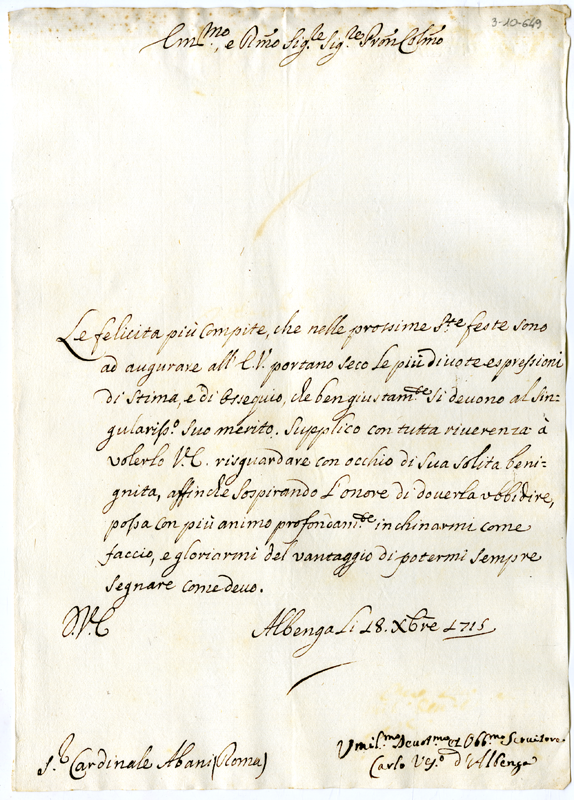 3-10-649
Em.mo, e Rmo Sig.re Sig.re Pron Colmo
Le felicita più Compite, che nelle prossime S.te feste sono
ad augurare all' E.V. portano seco le più divote espressioni
di Stima, e di Ossequio, che ben giustam.te si devono al Sin-
gulariss.o suo merito. Supplico con tutta riverenza à
volerlo V.E. risguardare con occhio di Sua Solita beni-
gnita, affinche Sospirando L'onore di doverla ubbidire,
possa con più animo profondam.te inchinarmi come
faccio, e gloriarmi del vantaggio di potermi Sempre
Segnare come devo.
D.V.E. Albenga Li 18. Xbre 1715
S.r Cardinale Abani (Roma)
Umil.mo Devot.mo et Obb.mo Servitore
Carlo Ves.o d'Albenga